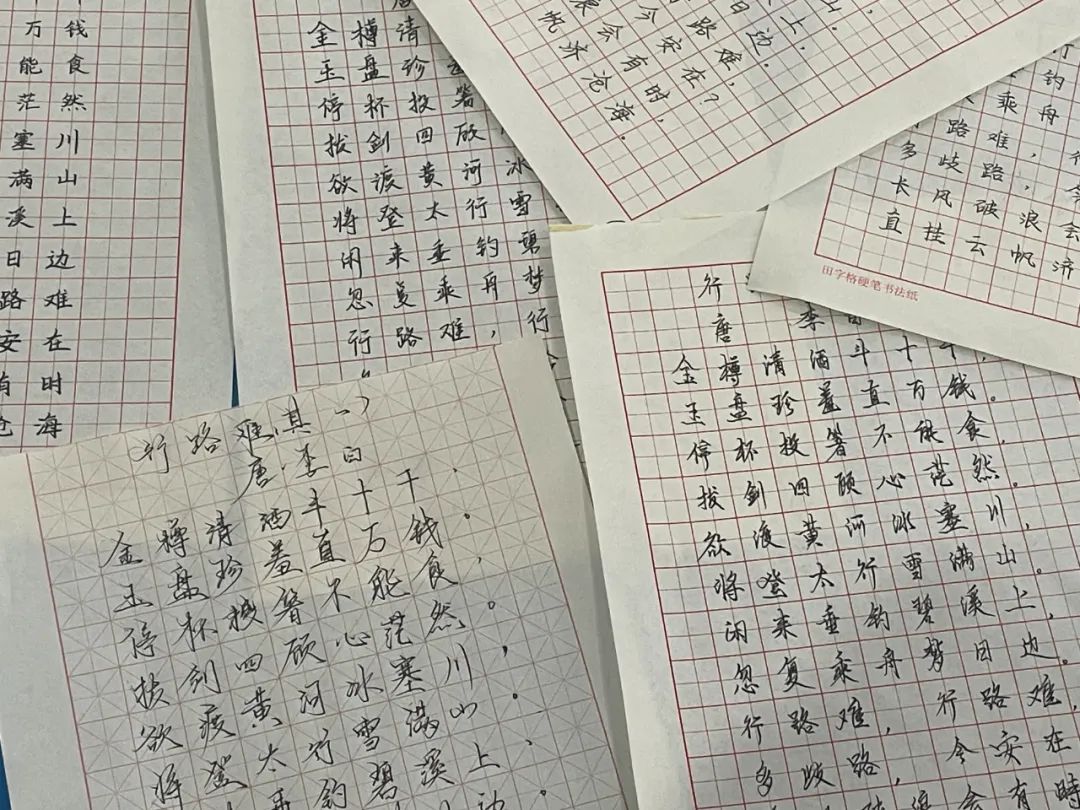 万钱
能食
茫然
塞川
满山
溪上
日边
路难
安在
有时
沧海
金樽清
玉盘珍
停杯投箸
拔剑四顾
欲渡黄河冰
将登太行雪
闲来垂钓碧
忽复乘舟梦
行路难，行
上，
日边。
路难，
今安在？
会有时，
帆济沧海。
钓
乘舟
路难，
多歧路，
长风破浪会
直挂云帆济
田字格硬笔书法纸
行
唐 李白
金樽清酒斗十千，
玉盘珍羞直万钱。
停杯投箸不能食，
拔剑四顾心茫然。
欲渡黄河冰塞川，
将登太行雪满山。
闲来垂钓碧溪上，
忽复乘舟梦日边。
行路难，行路难，
多歧路，今安在
会有时
行路难（其一）
唐·李白
金樽清酒斗十千，
玉盘珍羞直万钱。
停杯投箸不能食，
拔剑四顾心茫然。
欲渡黄河冰塞川，
将登太行雪满山，
钓碧溪上，